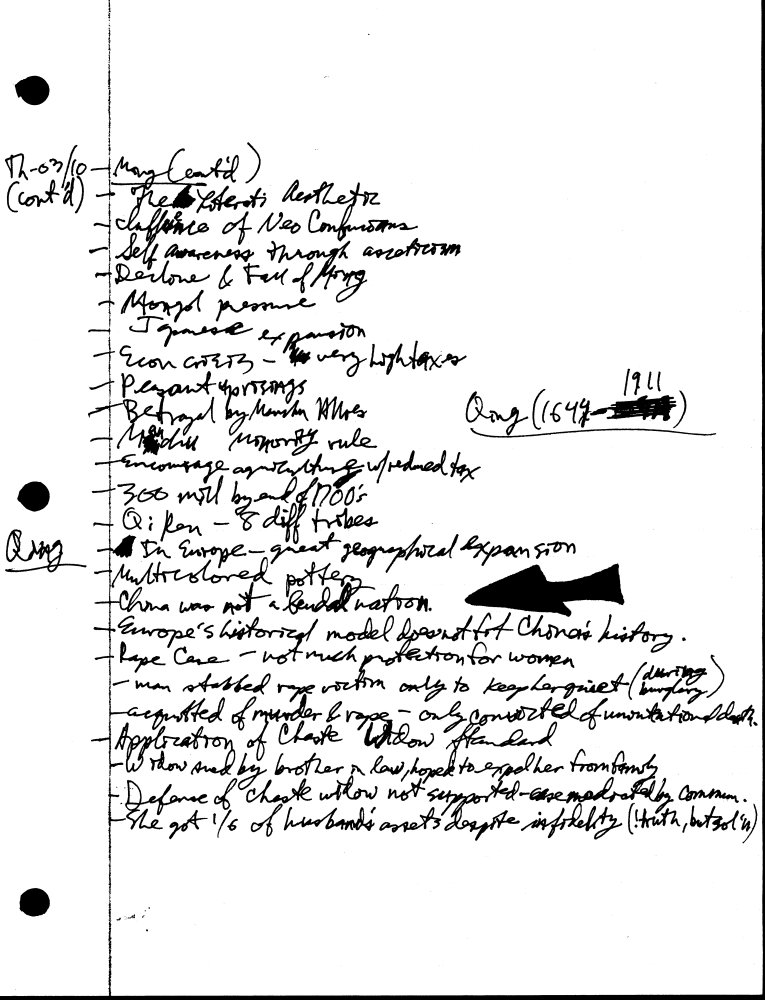 Th-03/10 — Ming (cont'd)
(cont'd)
- The Literati Aesthetic
- of Neo Confucians
- Self awareness through asceticism
- Decline & Fall of Ming
- Mongol pressure
- Japanese expansion
- Econ crisis - very high taxes
- Peasant uprisings
- Betrayal by Manchu Allies
Qing (1644-1911)
- Manchu Minority rule
- Encourage agriculture w/reduced tax
- 300 mill by end of 1700's
- Qi Ren - 8 diff tribes
Qing
- In Europe - great geographical expansion
- Multicolored pottery
- China was not a feudal nation.
- Europe's historical model does not fit China's history.
- Rape Case - not much protection for women
- man stabbed rape victim only to keep her quiet (during burglary)
- acquitted of murder & rape - only convicted of unintentional death.
- Application of Chaste Widow Standard
- Widow sued by brother in law, hoped to expel her from family
- Defense of chaste widow not supported - case mediated by commun.
- She got 1/6 of husband's assets despite infidelity (truth, but sol'n)